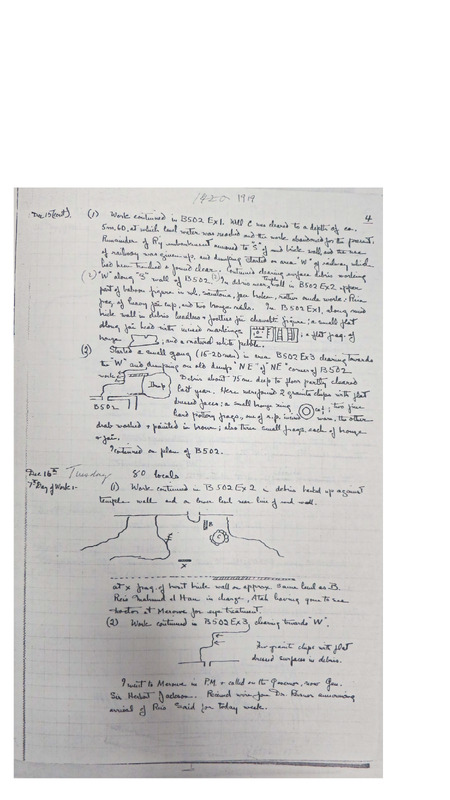 1919
4
Dec 15 (cont).
(1) Work continued in B502 Ex1. Well C was cleared to a depth of ca.
5m.60, at which level water was reached and the work abandoned for the present.
Remainder of Ry embankment removed to "S" of mud brick wall and the
of railway was given up, and dumping started on area "W" of railway which
had been trenched & found clear. Continued clearing surface debris working
"W" along "S" wall of B502. (2) In debris near wall in B502 Ex2 upper
part of baboon figure in
frag. of heavy fai. cup, and two bronze nails. In B502 Ex1, along mud
brick wall in debris headless & footless fai. figure; a small flat
oblong fai. bead with incised markings ; a flat frag. of
bronze ; and a natural white pebble.
(3) Started a small gang (15-20 men) in area B502 Ex3 clearing towards
the "W" and dumping on old dump "NE" of "NE" corner of B502
Debris about 75cm. deep to floor partly cleared
Dump
last year. Here were found 2 granite chips with flat
dressed faces; a small bronze ring ; two fine
B502
hard pottery frags, one of incised ware, the other
drab washed & painted in brown; also three small frags. each of bronze
& fai.
I continued on plan of B502.
Dec 16th Tuesday 80 locals
7th Day of Work :-
(1) Work continued in B502 Ex2 in debris banked up against
temple wall and a lower level near line of mud wall.
B
C
x
at x frag. of burnt brick wall on approx same level as B.
Rais Mahmud el in charge, Atah having gone to see
doctor at Merowe for eye treatment.
(2) Work continued in B502 Ex3, clearing towards "W".
Two granite chips with flat
dressed surfaces in debris.
I went to Merowe in P.M. & called on the Governor, now Gen.
Sir Herbert Jackson. Received wire from Dr. Reisner announcing
arrival of Rais Said for today week.